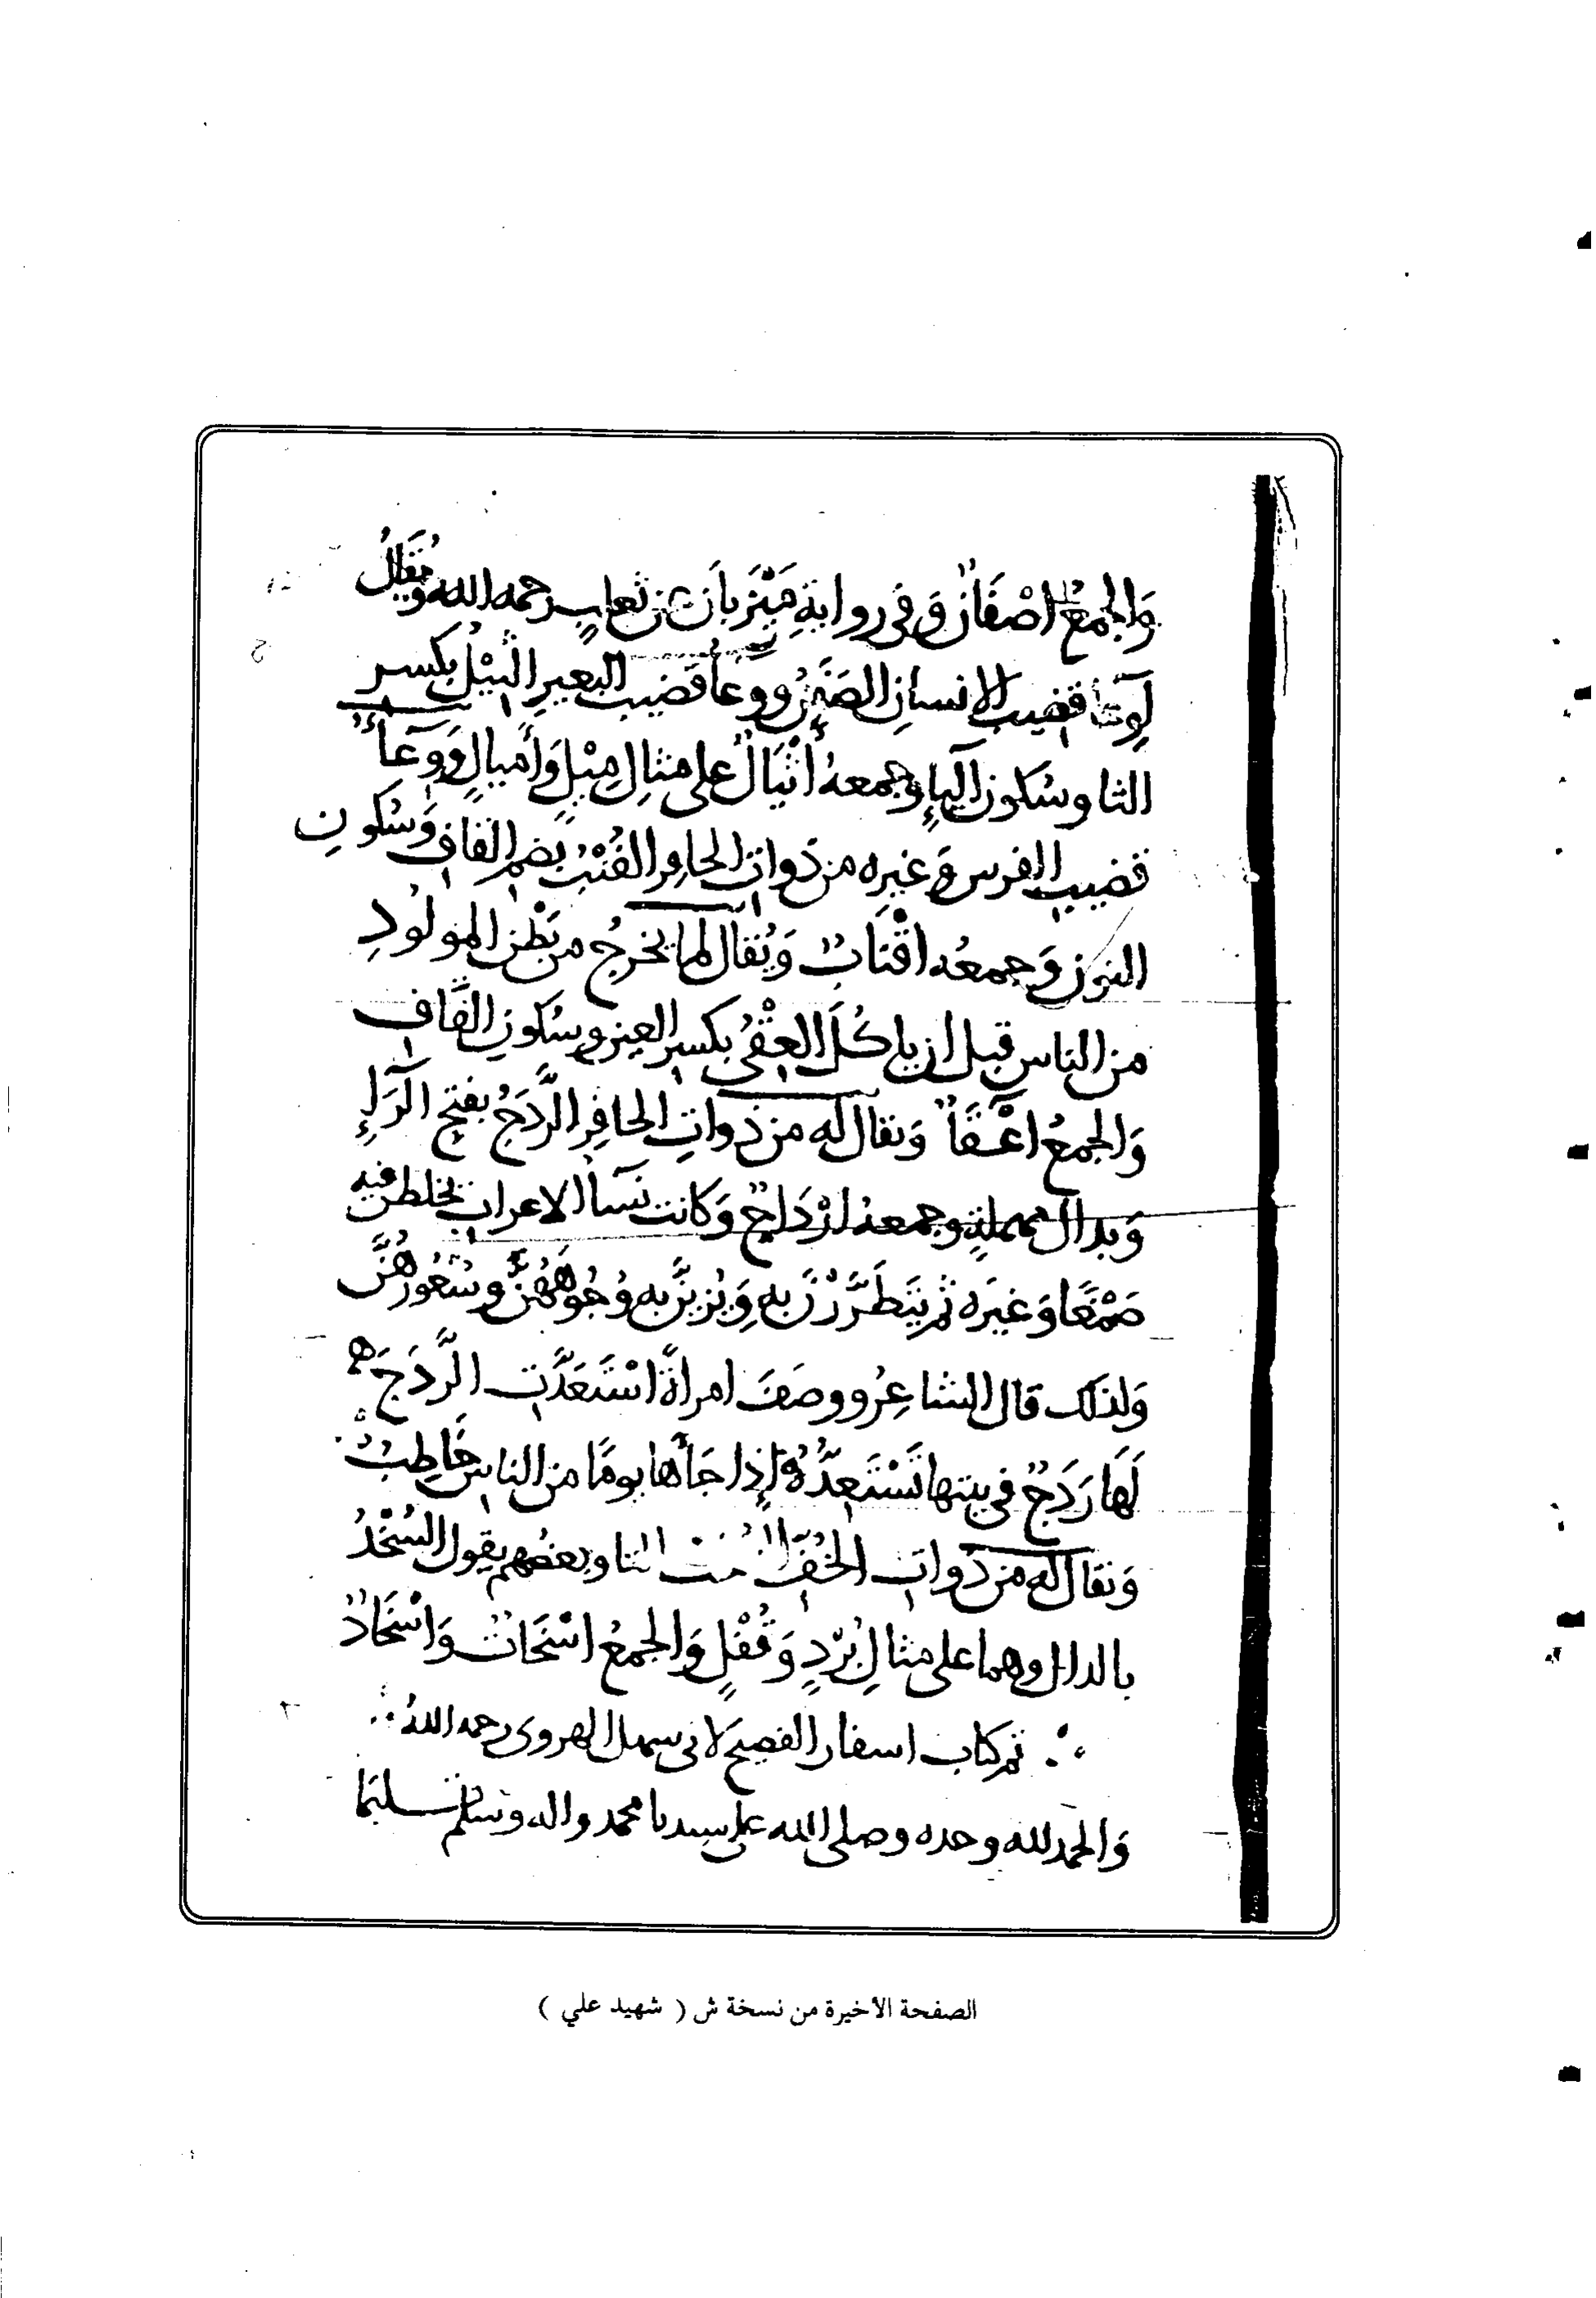 وَالجمعُ اصْفَانٌ وَفي روايةِ مَبْرَمَان عن ثعلبٍ رحمه الله وَيُقَالُ
لِوِعَا قضيب الانسانِ الصَفَنُ ووعَا قضيب البعيرِ الثِيْلُ بكسر
الثا وسُكون اليآءِ وجمعه أَثْيَالٌ على مثالِ مِيْلٍ وَأَميالٍ وَوِعَآءُ
قضيب الفرس وَغيرِه من ذَواتِ الحافِر القُنْبُ بضمِ القافِ وَسُكونِ
النون وَجمعُه اقْنَابٌ وَيُقَال لما يخرجُ من بَطْنِ المولُودِ
من الناسِ قبل ان ياكُلَ العِقْيُ بكسرِ العين وسُكونِ القَافِ
وَالجمعُ اعْقَآءٌ وَيقال لَه من ذَواتِ الحافِرِ الرَّدَجُ بفتحِ الرآءِ
وَبدالٍ مهملةٍ وجمعهُ ارْدَاجٌ وَكانت نسَآ الاعرابِ يخلطن فيه
صَمْغًا وَغيرَه ثم يَتَطَرَّرْنَ به وَيُزيِنَّ به وُجُوهَهُنَّ وشُعُورَهُنَّ
وَلذلك قال الشاعِرُ ووصَفَ امرأةً اسْتَعَدَّتِ الرَّدَجَ
لَهَا رَدَجٌ في بيتها تَسْتَعِدُّهُ إذا جَآءَها يومًا من الناسِ خَاطِبُ
وَيقال له من ذَواتِ الخُفِّ السُّخْتُ بالتا وبعضُهم يقول السُخْدُ
بالدال وهما على مثالِ بُرْدٍ وَقُفْلٍ وَالجمعُ اسْخَاتٌ وَاسْخَادٌ
تم كتاب اسفار الفصيح لابي سهل الهروى رحمه اللهُ
وَالحمد لله وحده وصلى الله على سيدنا محمد واله وسلم تسليمًا
الصفحة الأخيرة من نسخة ش ( شهيد علي )